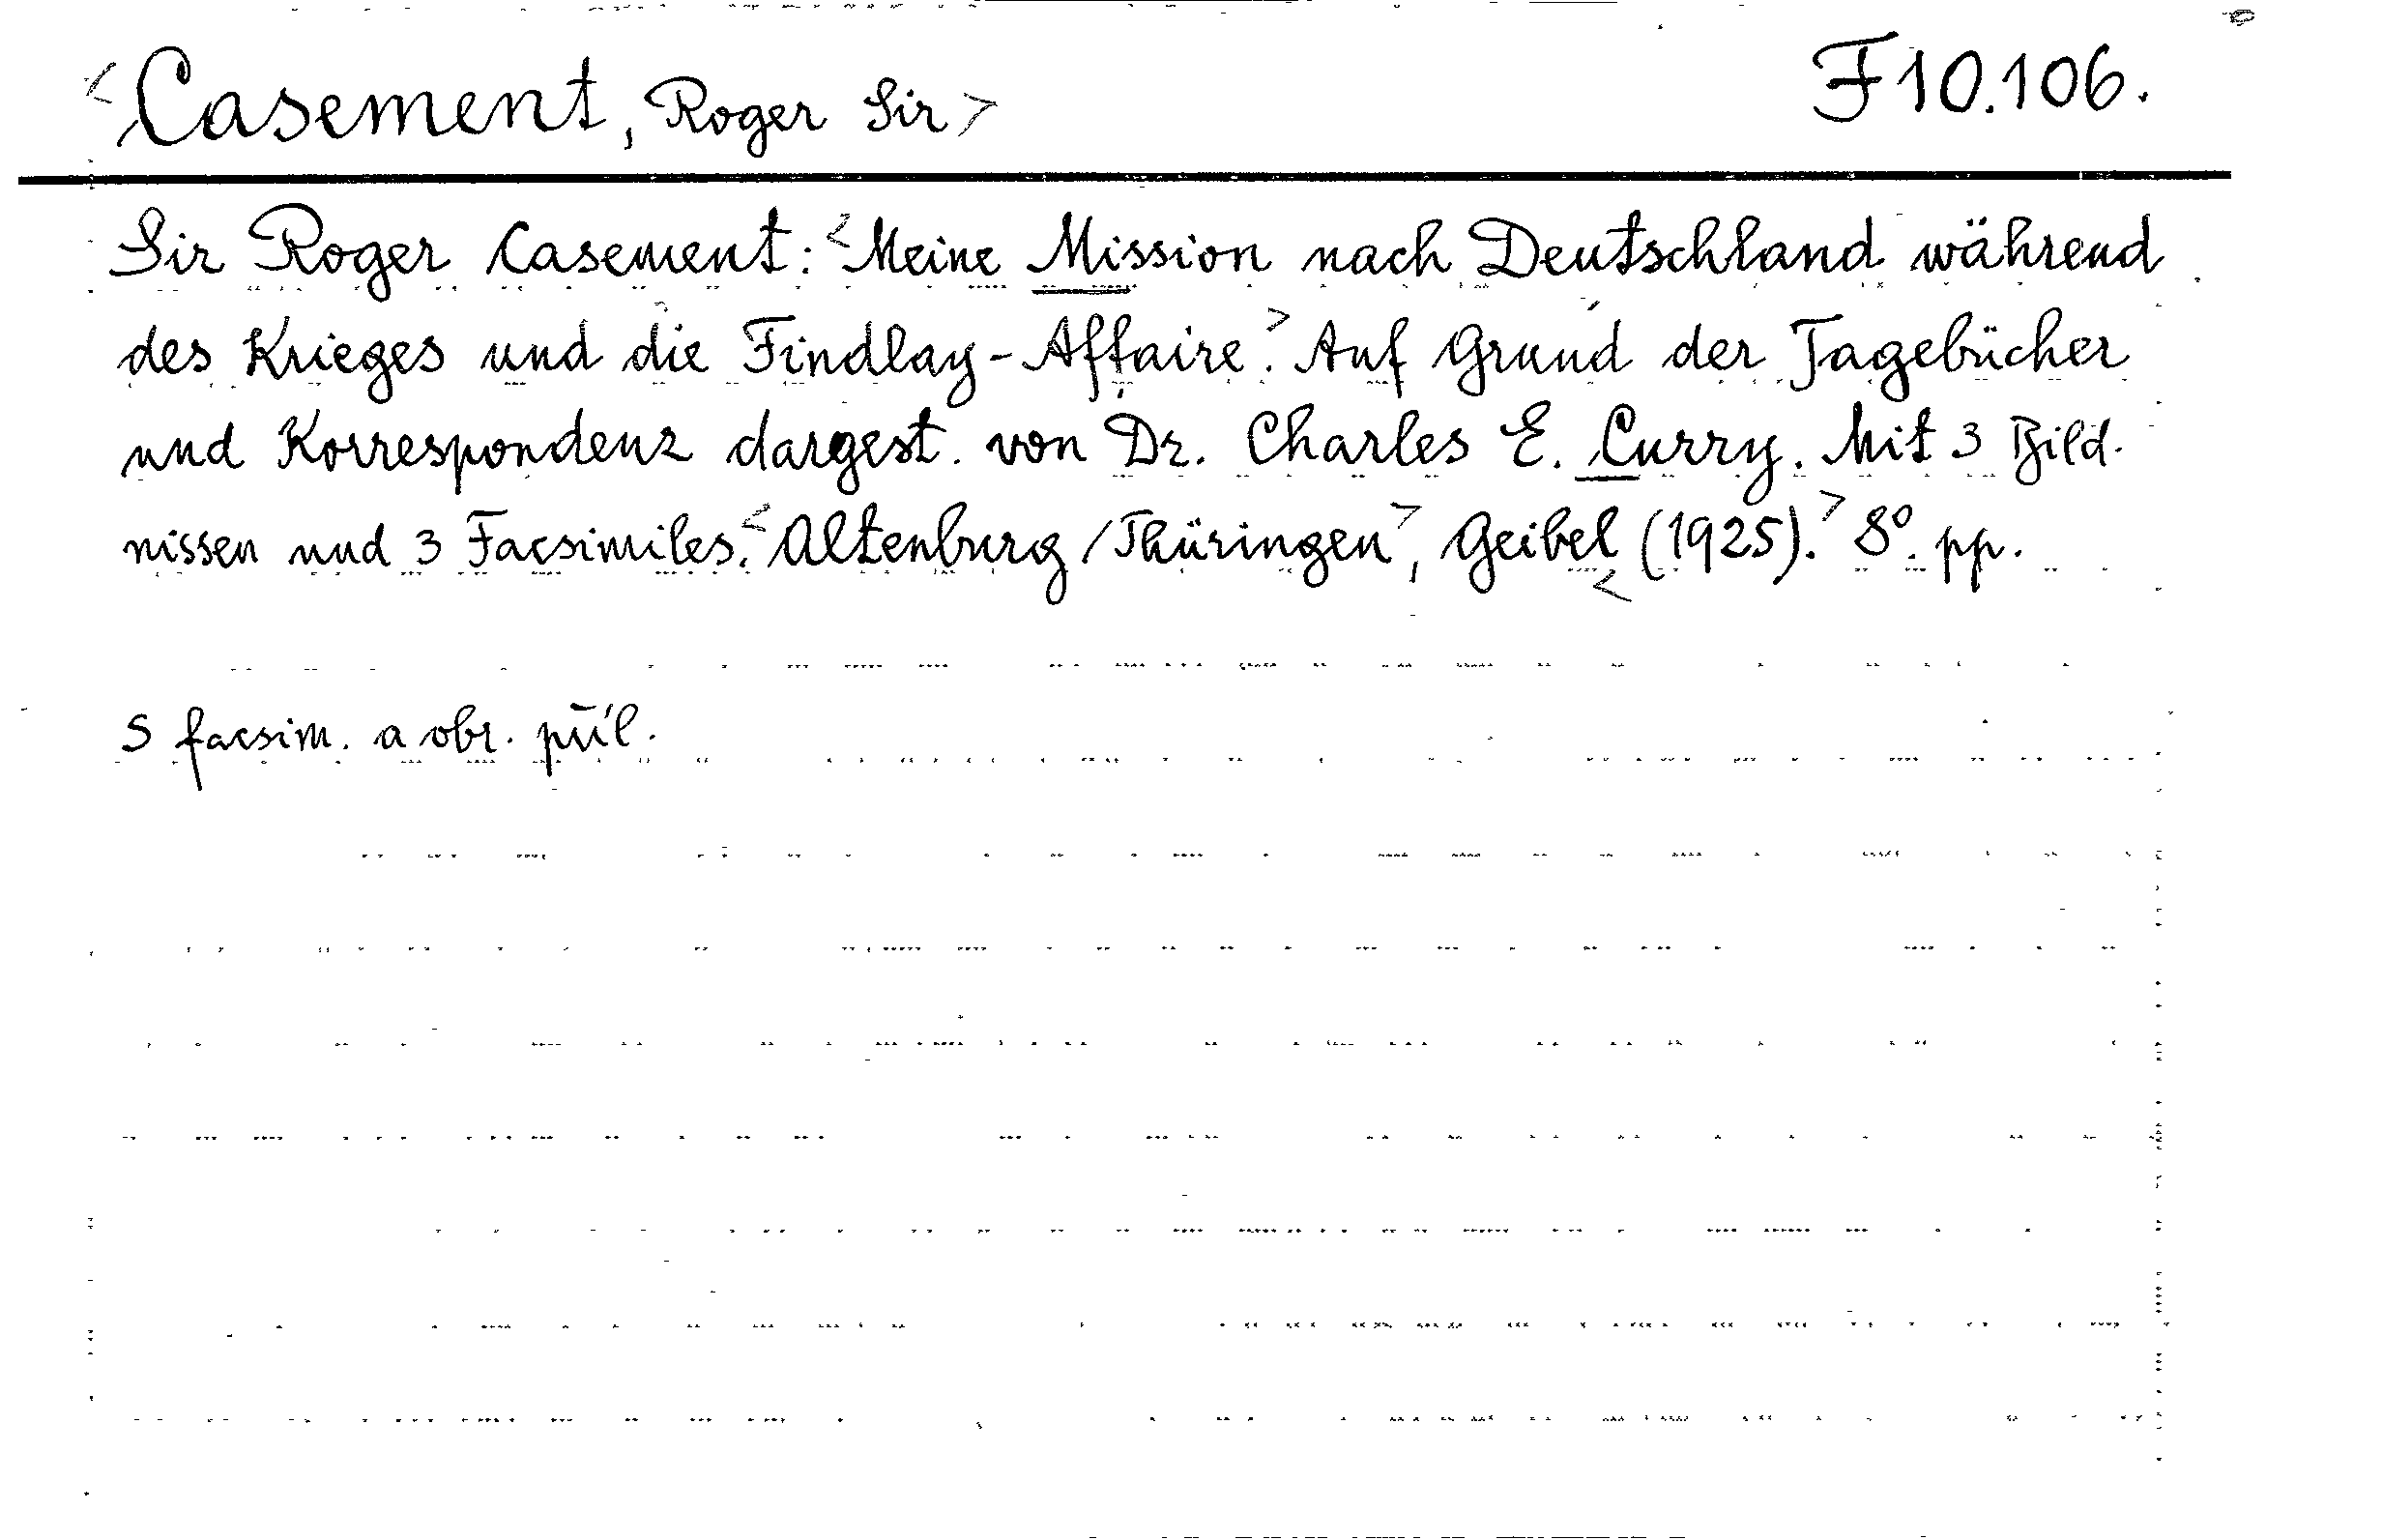 <Casement, Roger Sir> F10.106.
Sir Roger Casement: <Meine Mission nach Deutschland während
des Krieges und die Findlay-Affaire.> Auf Grund der Tagebücher
und Korrespondenz dargest. von Dr. Charles E. Curry. Mit 3 Bild-
nissen und 3 Facsimiles. <Altenburg/Thüringen>, Geibel <(1925).> 8°. pp.
S facsim. a obr. příl.